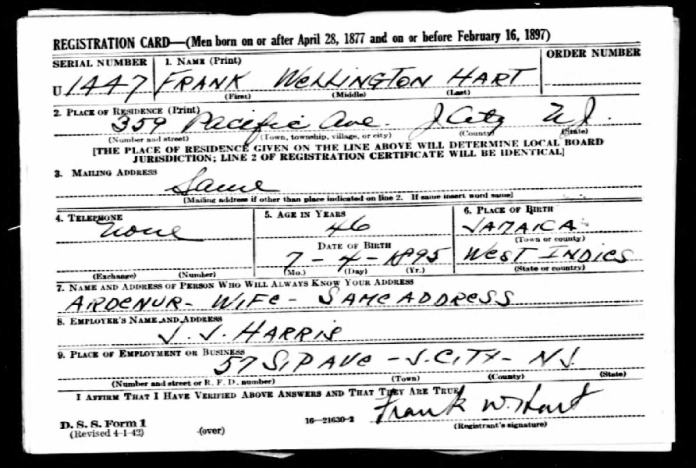 REGISTRATION CARD—(Men born on or after April 28, 1877 and on or before February 16, 1897)
SERIAL NUMBER 1. NAME (Print) ORDER NUMBER
U 1447 FRANK WELLINGTON HART
(First) (Middle) (Last)
2. PLACE OF RESIDENCE (Print)
359 Pacific Ave. J City N.J.
(Number and street) (Town, township, village, or city) (County) (State)
[THE PLACE OF RESIDENCE GIVEN ON THE LINE ABOVE WILL DETERMINE LOCAL BOARD
JURISDICTION; LINE 2 OF REGISTRATION CERTIFICATE WILL BE IDENTICAL]
3. MAILING ADDRESS
Same
[Mailing address if other than place indicated on line 2. If same insert word same]
4. TELEPHONE 5. AGE IN YEARS 6. PLACE OF BIRTH
None 46 JAMAICA
(Town or county)
DATE OF BIRTH
7-4-1895 WEST INDIES
(Exchange) (Number) (Mo.) (Day) (Yr.) (State or country)
7. NAME AND ADDRESS OF PERSON WHO WILL ALWAYS KNOW YOUR ADDRESS
ARDENUR- WIFE- SAME ADDRESS
8. EMPLOYER'S NAME AND ADDRESS
J. J. HARRIS
9. PLACE OF EMPLOYMENT OR BUSINESS
57 SIP AVE - J. CITY - NJ
(Number and street or R. F. D. number) (Town) (County) (State)
I AFFIRM THAT I HAVE VERIFIED ABOVE ANSWERS AND THAT THEY ARE TRUE.
Frank W. Hart
D. S. S. Form 1
(Revised 4-1-42) (over) 16—21630-2 (Registrant's signature)